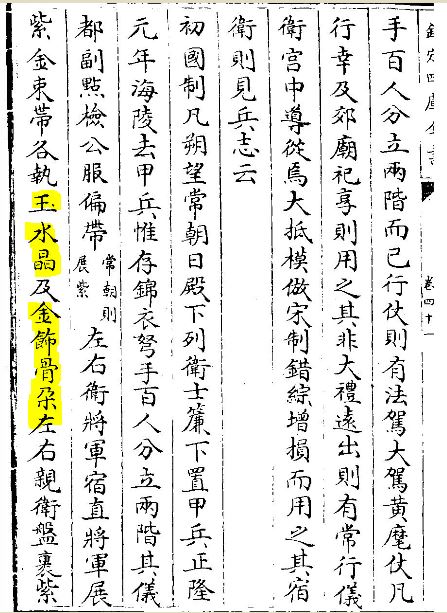 欽定四庫全書
卷四十一
手百人分立兩階而已行仗則有法駕大駕黃麾仗凡
行幸及郊廟祀享則用之其非大禮遠出則有常行儀
衛宮中導從焉大抵模倣宋制錯綜增損而用之其宿
衛則見兵志云
初國制凡朔望常朝日殿下列衛士簾下置甲兵正隆
元年海陵去甲兵惟存錦衣弩手百人分立兩階其儀
都副點檢公服偏帶常朝則展紫左右衛將軍宿直將軍展
紫金束帶各執玉水晶及金飾骨朶左右親衛盤裹紫